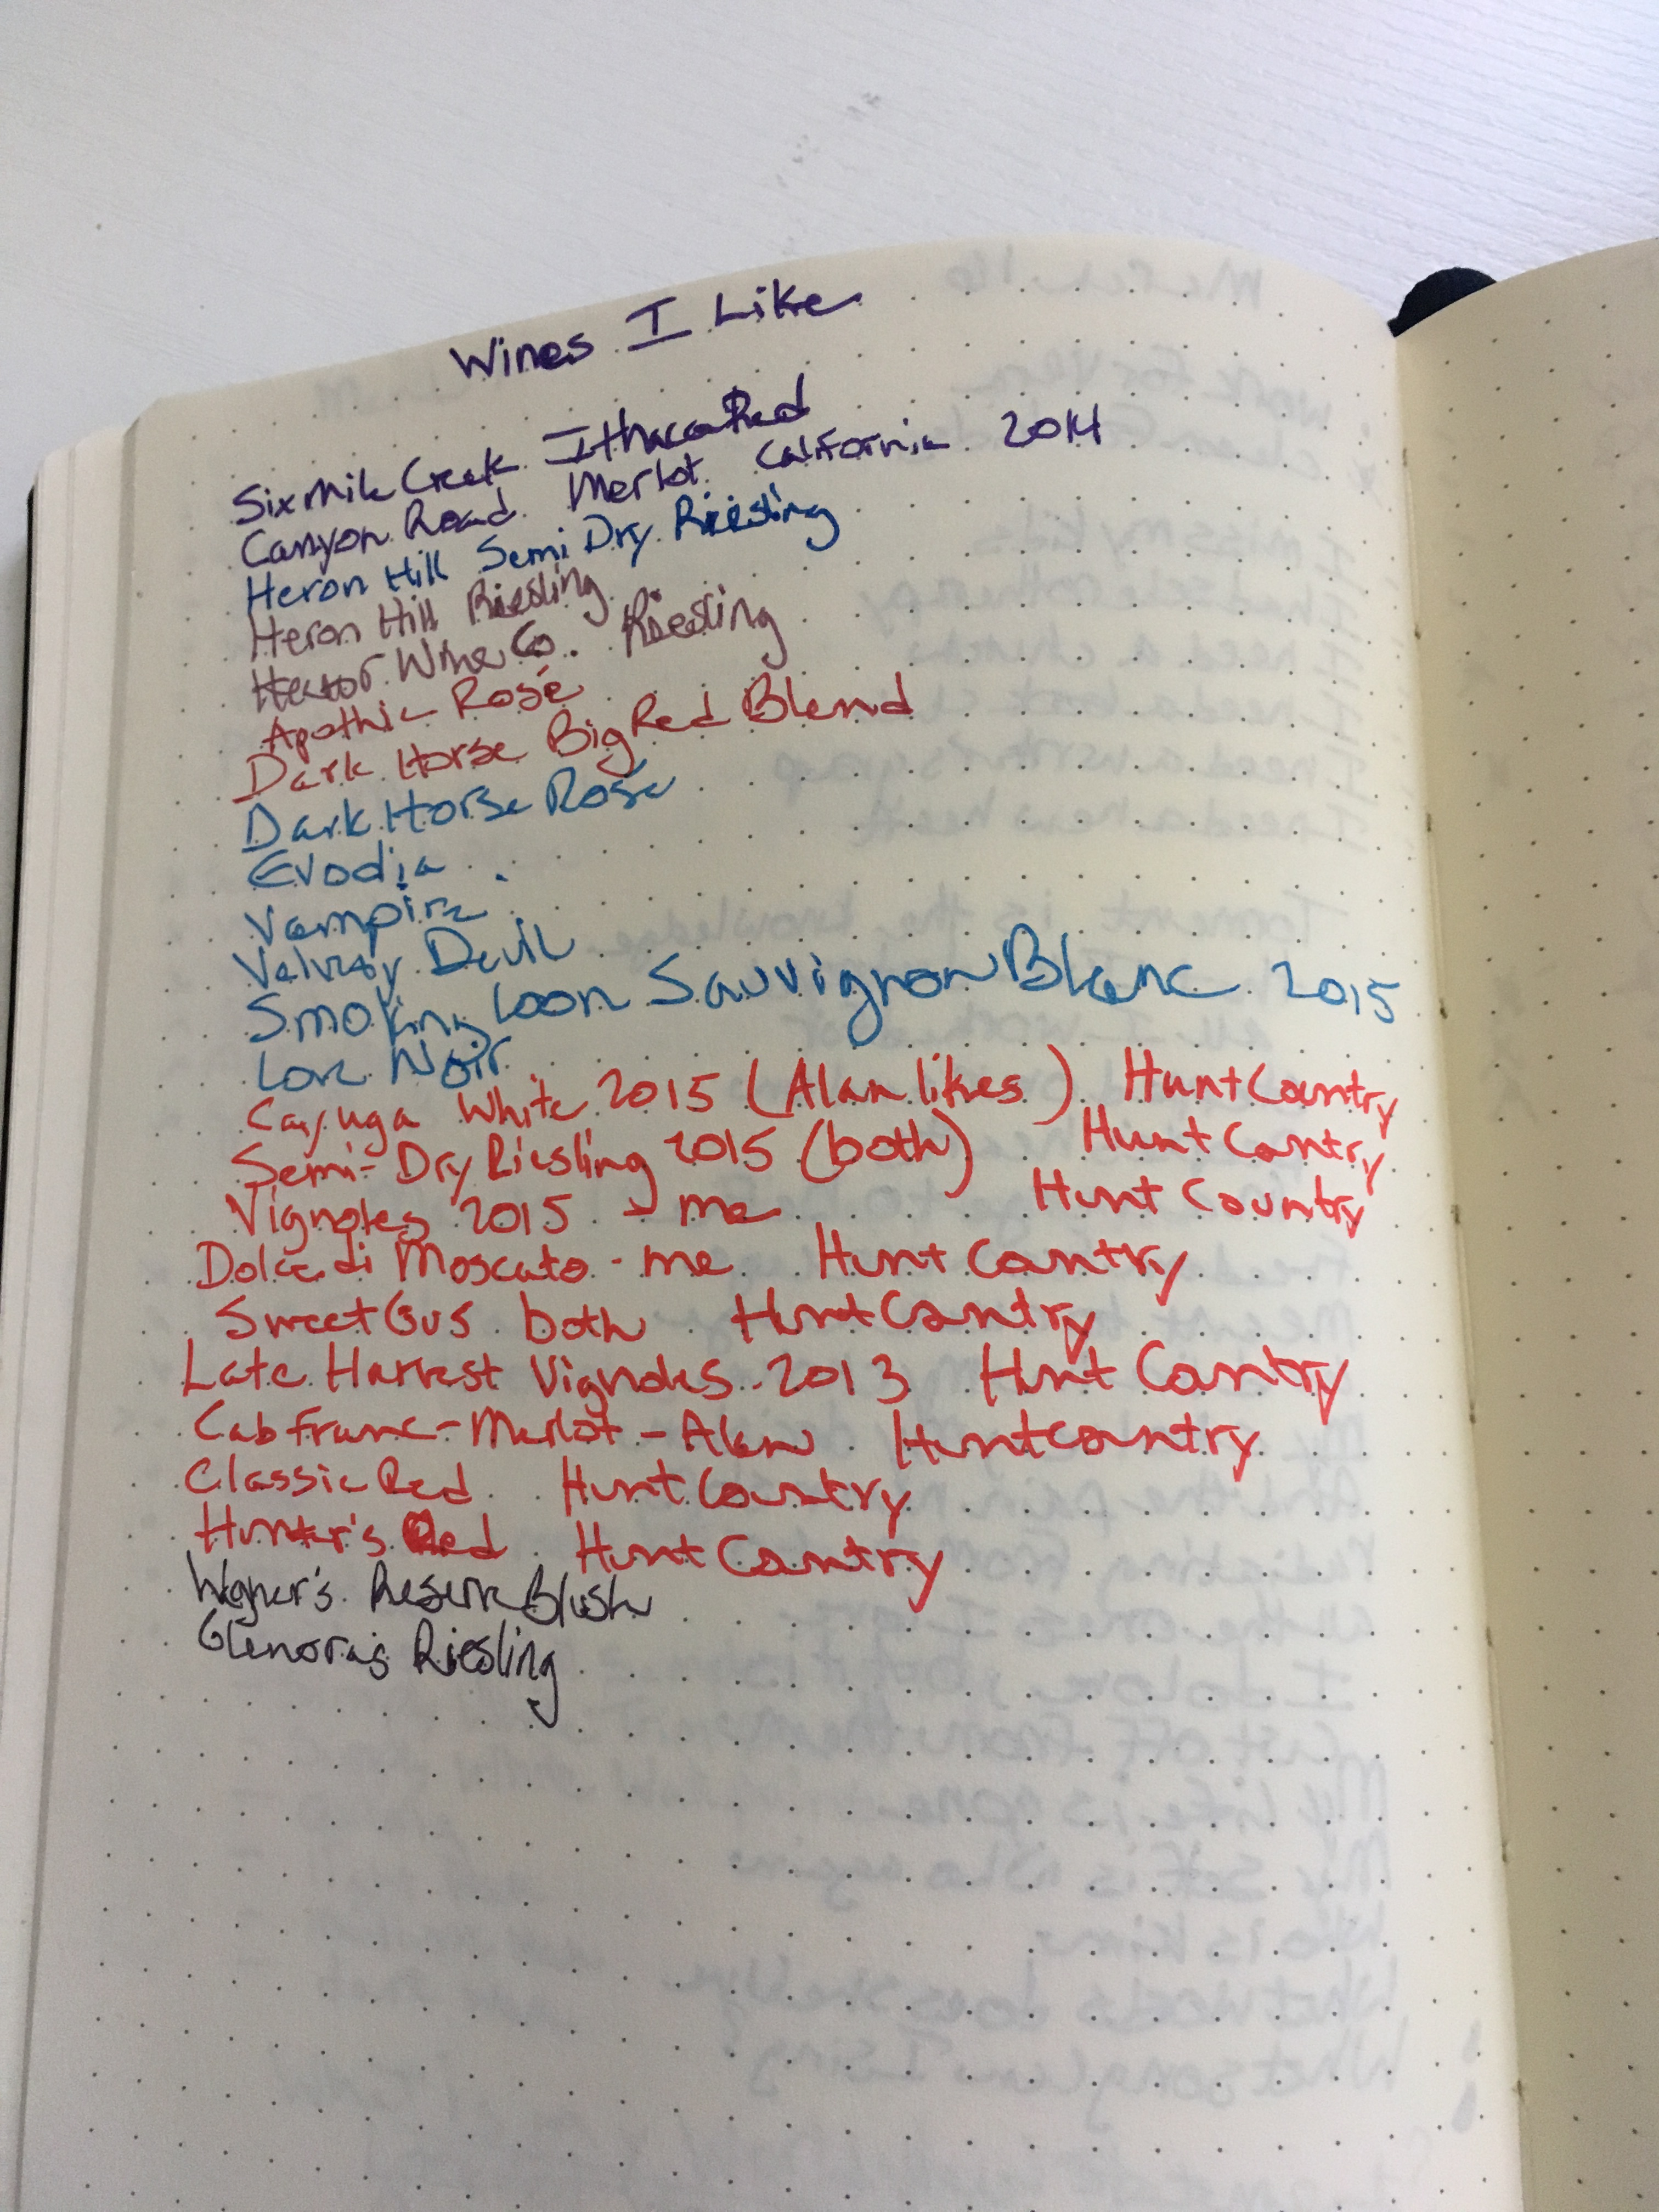 Wines I Like
Six Mile Creek Ithaca Red
Canyon Road Merlot California 2014
Heron Hill Semi Dry Riesling
Heron Hill Riesling
Hector Wine Co. Riesling
Apothic Rosé
Dark Horse Big Red Blend
Dark Horse Rosé
Evodia
Vampire
Velvet Devil
Smoking Loon Sauvignon Blanc 2015
Love Noir
Cayuga White 2015 (Alan likes) Hunt Country
Semi-Dry Riesling 2015 (both) Hunt Country
Vignoles 2015 - me Hunt Country
Dolce di Moscato - me Hunt Country
Sweet Gus both Hunt Country
Late Harvest Vignoles 2013 Hunt Country
Cab Franc-Merlot - Alan Hunt Country
Classic Red Hunt Country
Hunter's Red Hunt Country
Wagner's Reserve Blush
Glenora's Riesling